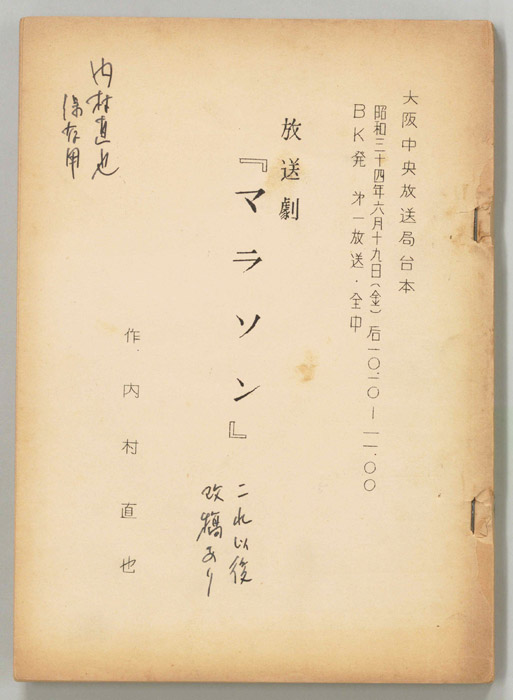 大阪中央放送局台本
昭和三十四年六月十九日(金)后一〇.一〇ー一一.〇〇
BK発 㐧一放送・全中
放送劇
『マラソン』
これ以後
改稿あり
作、内村直也
内村直也
保存用